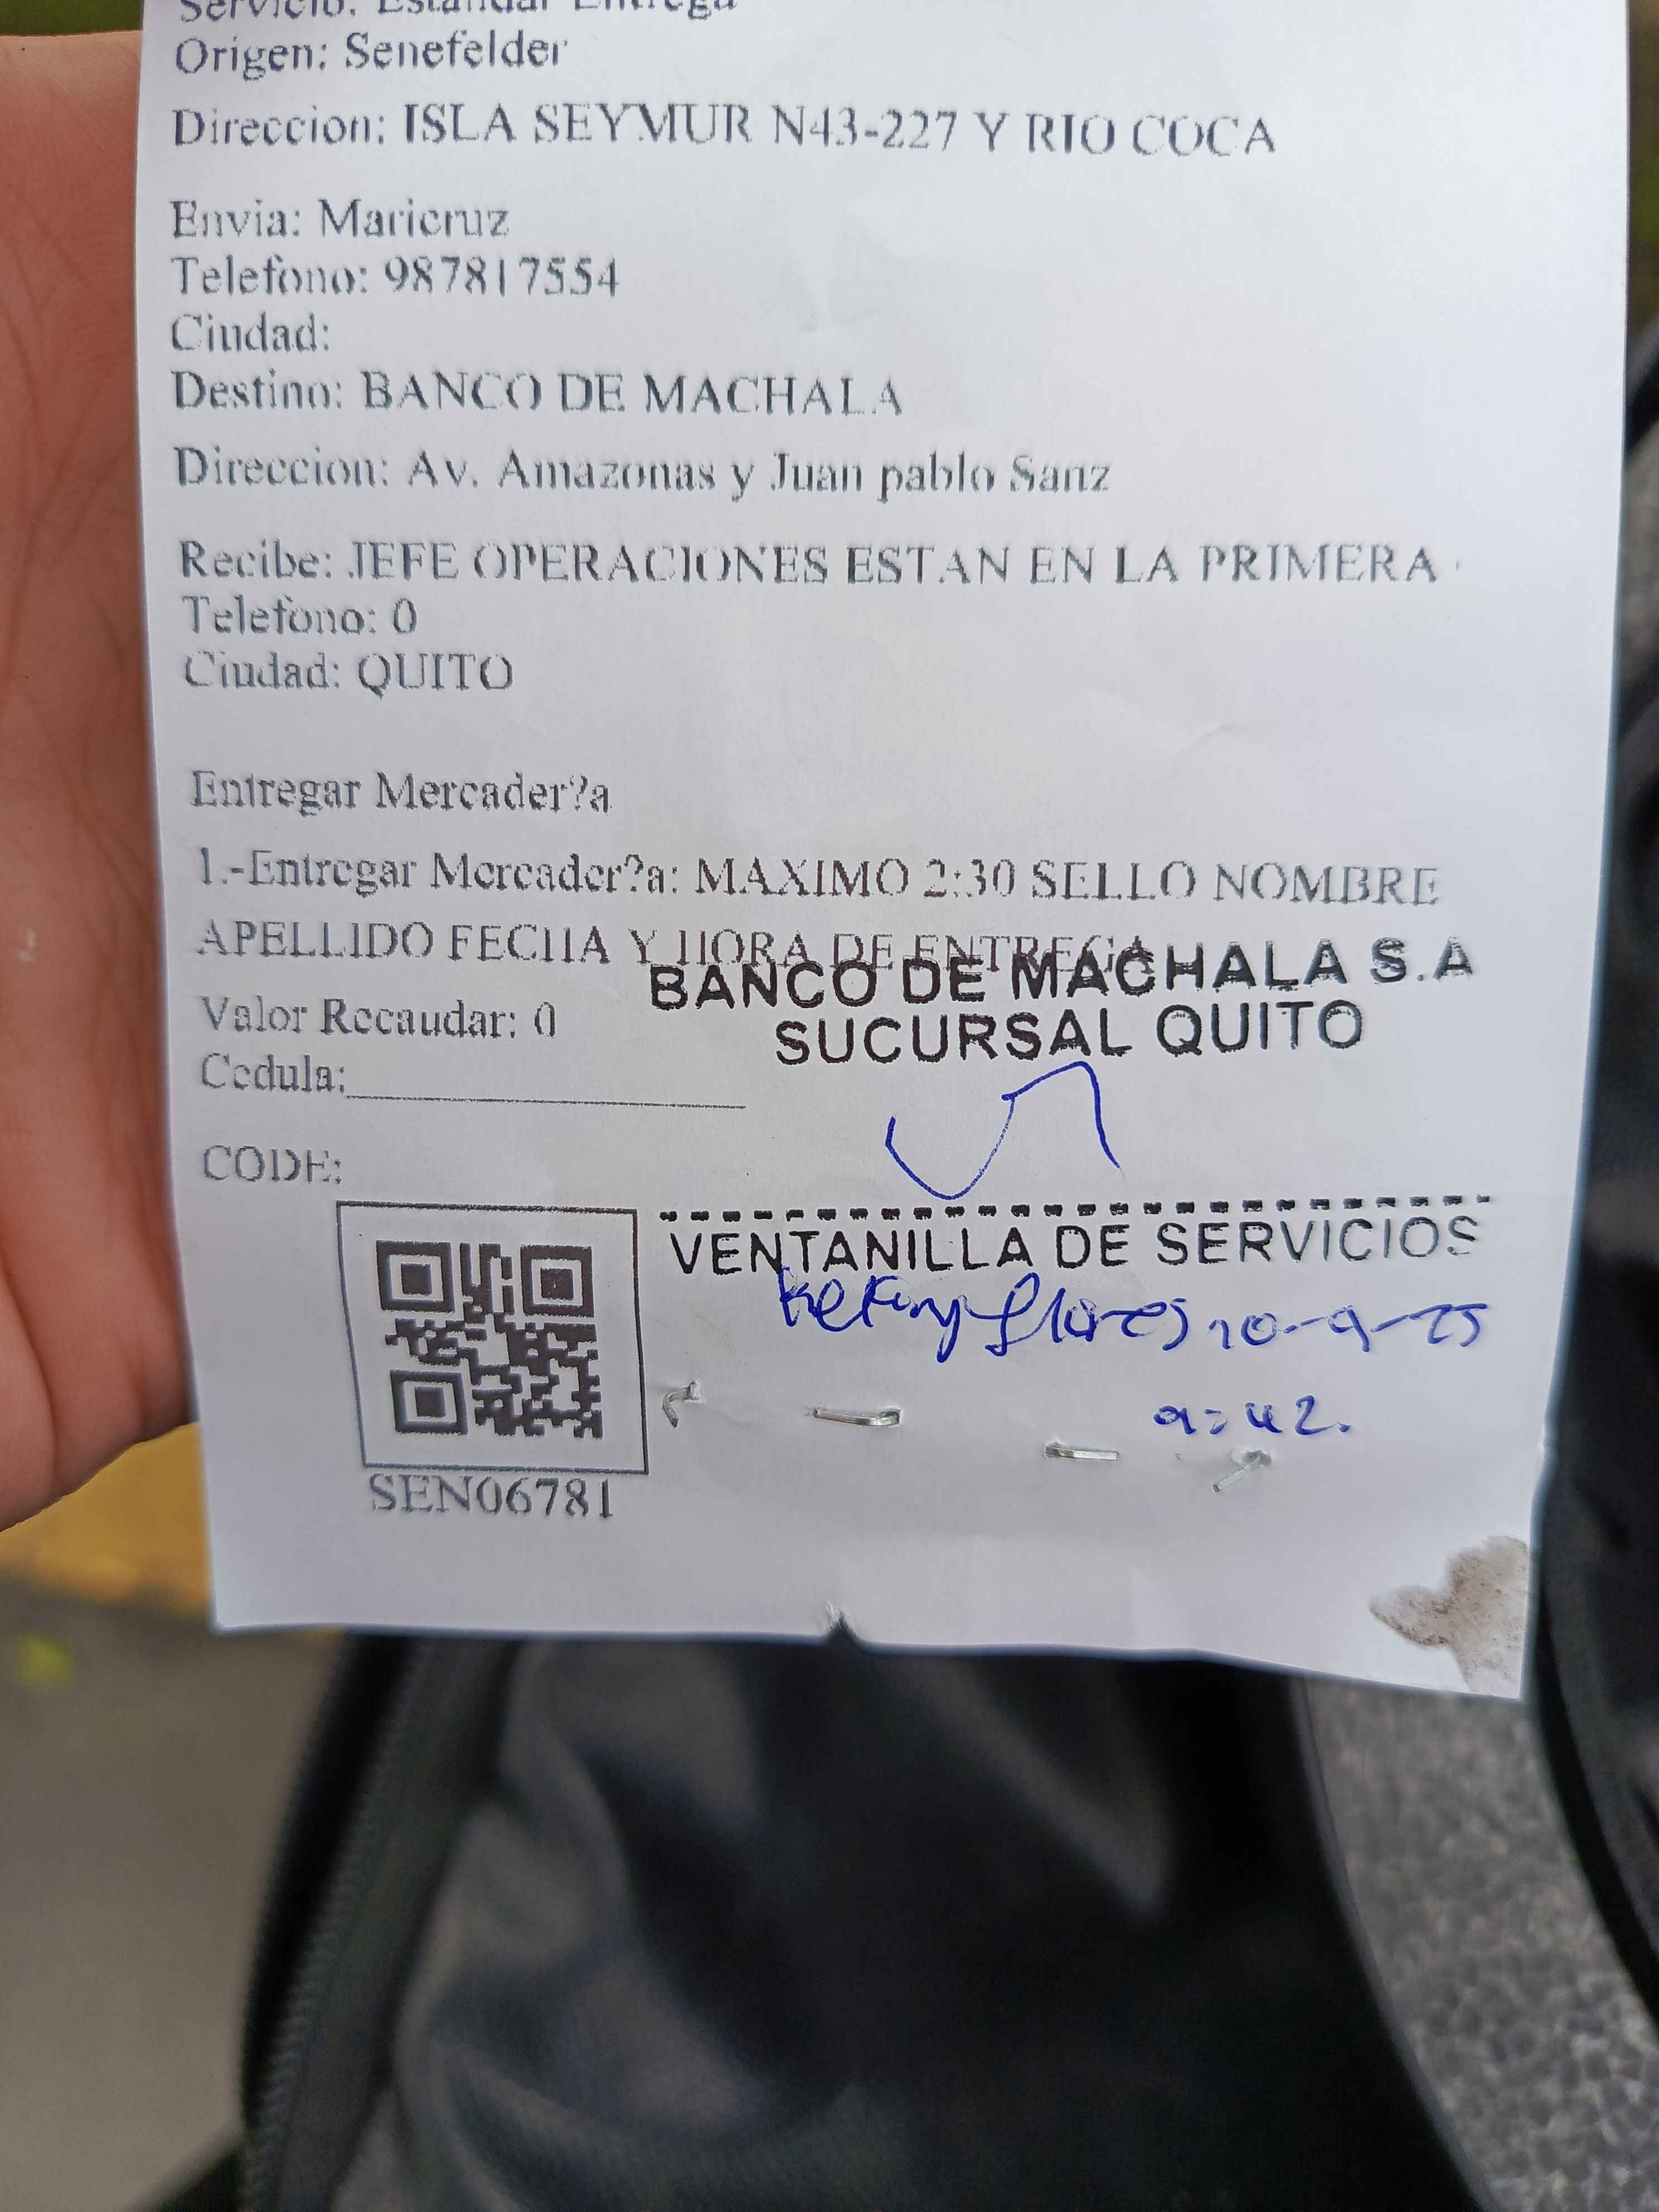 Servicio: Estandar Entrega
Origen: Senefelder
Direccion: ISLA SEYMUR N43-227 Y RIO COCA
Envia: Maricruz
Telefono: 987817554
Ciudad:
Destino: BANCO DE MACHALA
Direccion: Av. Amazonas y Juan pablo Sanz
Recibe: JEFE OPERACIONES ESTAN EN LA PRIMERA
Telefono: 0
Ciudad: QUITO
Entregar Mercader?a
1.-Entregar Mercader?a: MAXIMO 2:30 SELLO NOMBRE
APELLIDO FECHA Y HORA DE ENTREGA
BANCO DE MACHALA S.A
SUCURSAL QUITO
Valor Recaudar: 0
Cedula:
CODE:
VENTANILLA DE SERVICIOS
flores 10-9-25
9:42.
SEN06781